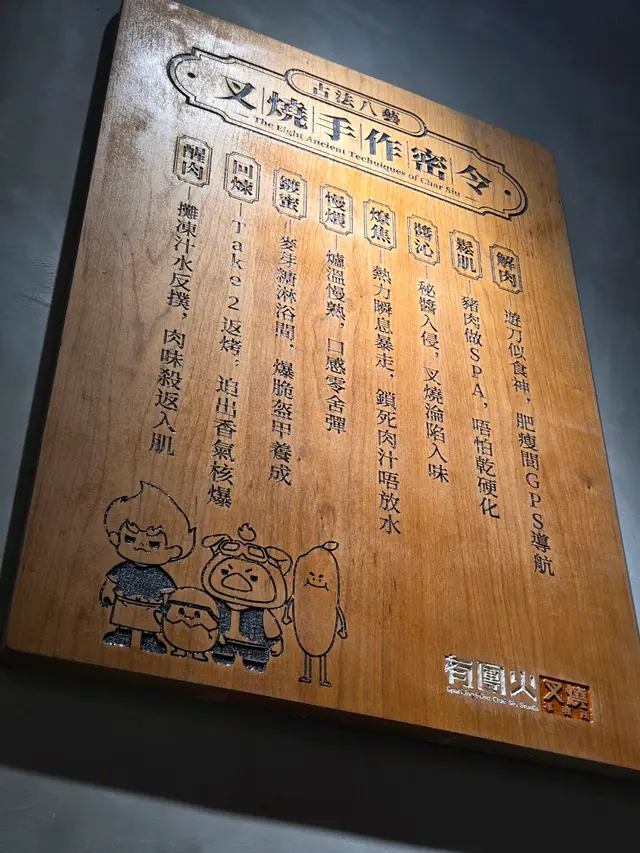 古法八藝
叉燒手作密令
The Eight Ancient Techniques of Char Siu
解肉 遊刀似食神，肥瘦間GPS導航
鬆肌 豬肉做SPA，唔怕乾硬化
醬沁 秘醬入侵，叉燒淪陷入味
燎焦 熱力瞬息暴走，鎖死肉汁唔放水
慢煨 爐溫慢熟，口感零舍彈
鍍蜜 麥芽糖淋浴間，爆脆盔甲養成
回煉 Take2返烤，迫出香氣核爆
醒肉 攤凍汁水反撲，肉味殺返入肌
有團火
叉燒